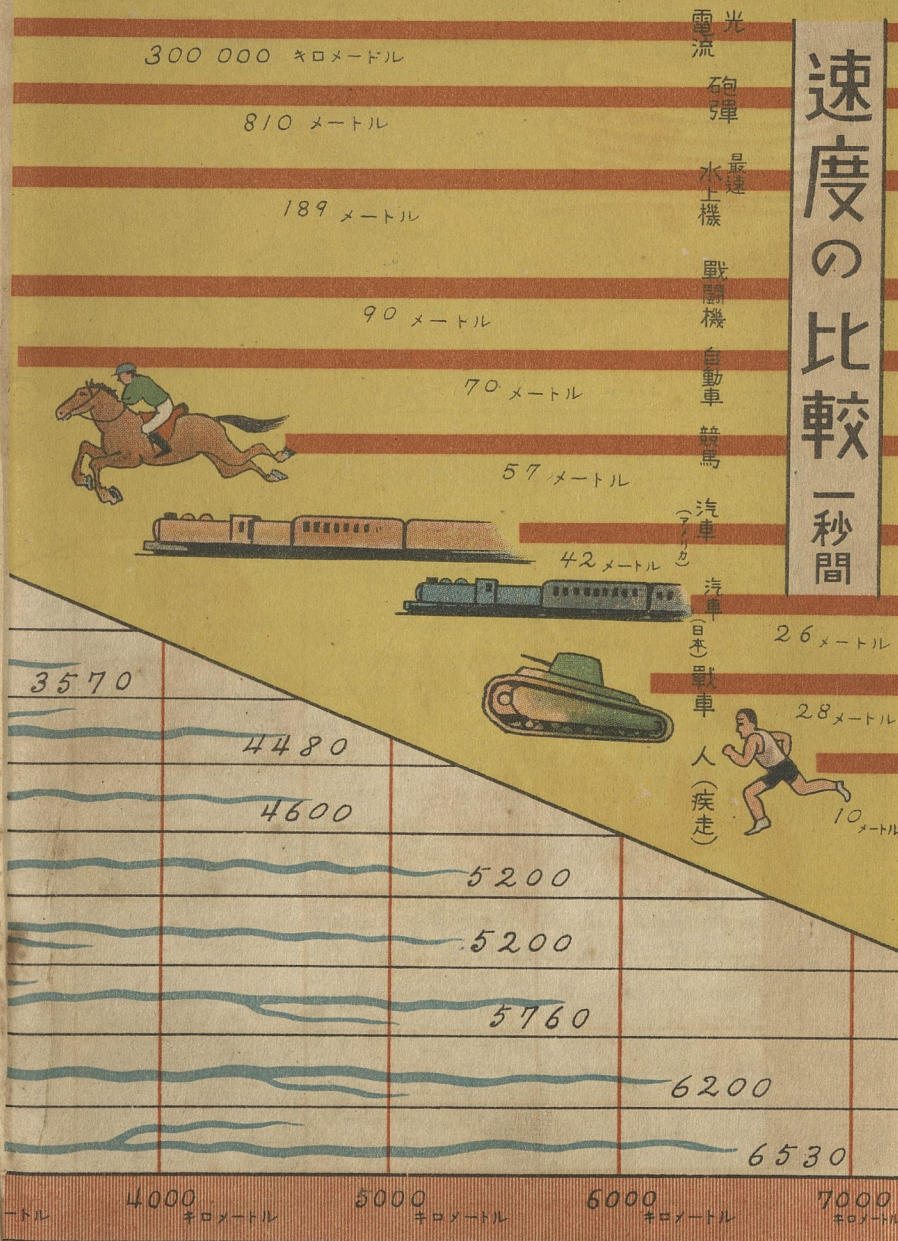 速度の比較 一秒間
光
電流
300 000 キロメードル
砲弾
810 メートル
最速
水上機
189 メートル
戰闘機
90 メートル
自動車
70 メートル
競馬
57 メートル
汽車
(アメリカ)
42 メートル
汽車
(日本)
26 メートル
戰車
28 メートル
人(疾走)
10 メートル
3570
4480
4600
5200
5200
5760
6200
6530
ートル
4000 キロメートル
5000 キロメートル
6000 キロメートル
7000 キロメートル